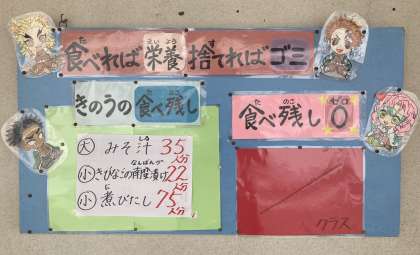 食べれば栄養 捨てればゴミ
きのうの食べ残し
食べ残し0
大 みそ汁 35人分
小 きびなごの南蛮漬け 22人分
小 煮びたし 75人分
クラス